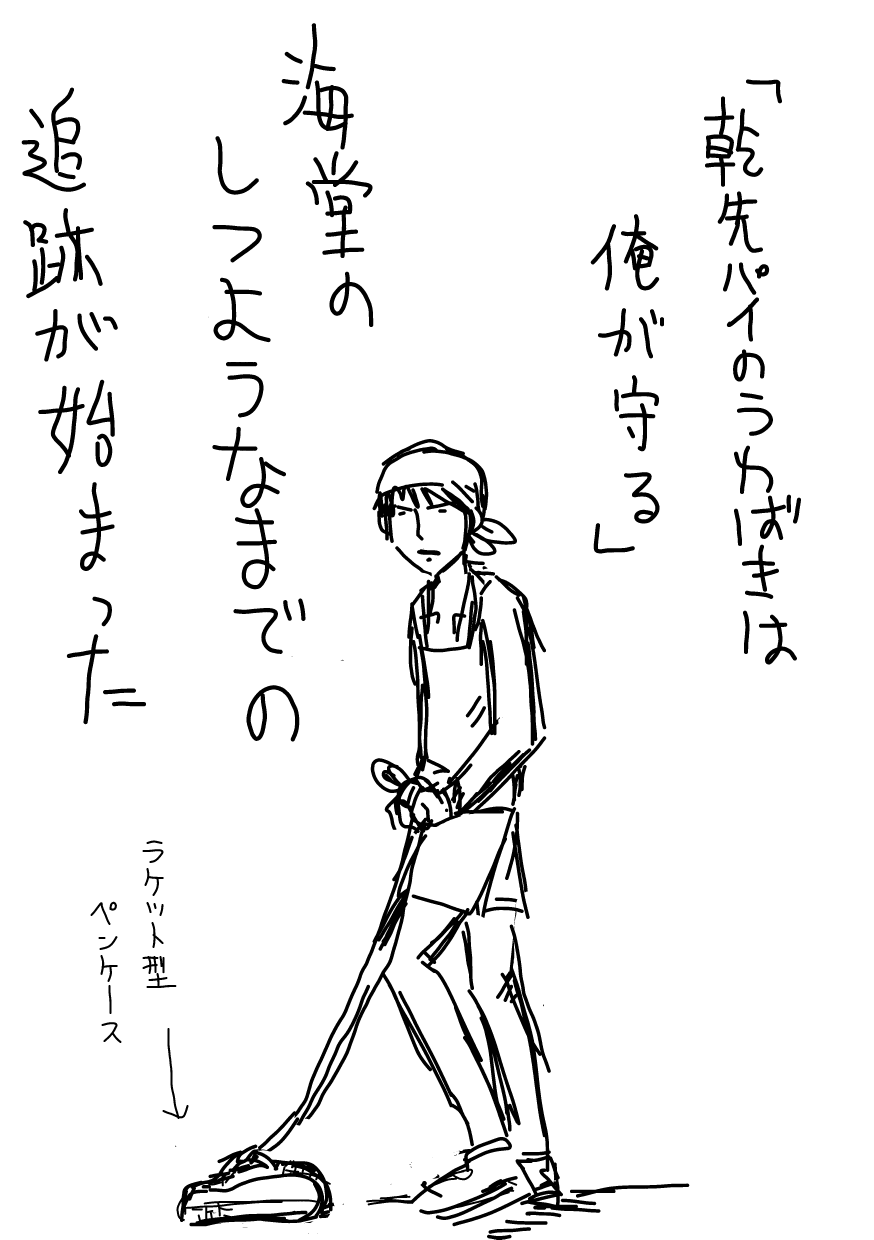 「乾先パイのうわばきは
俺が守る」
海堂の
しつようなまでの
追跡が始まった
ラケット型
ペンケース